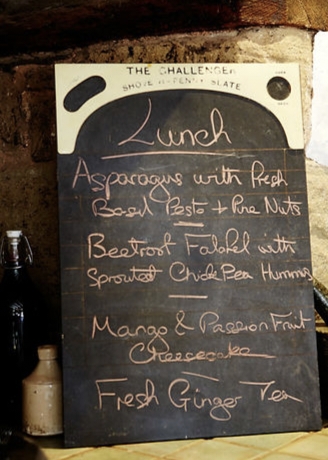 THE CHALLENGER
SHOVE HA'PENNY SLATE
Lunch
Asparagus with fresh
Basil Pesto + Pine Nuts
Beetroot Falafel with
Sprouted Chick Pea Hummus
Mango & Passion Fruit
Cheesecake
Fresh Ginger Tea